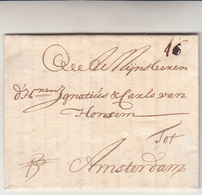 16
Aen Mijn Heeren
d'Heeren Ignatius & Carlo van
Honsem
Tot
Amsterdam